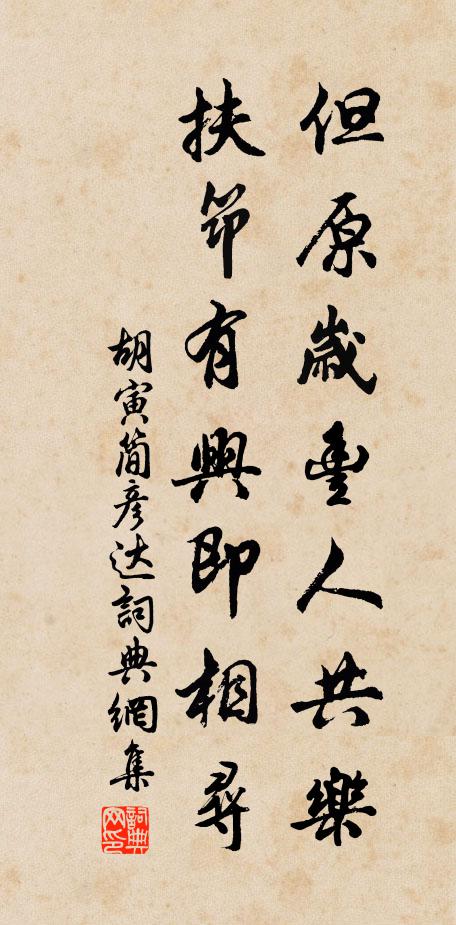 但原歲豐人共樂
扶筇有興即相尋
胡寅簡彥达詞典網集
詞典网印